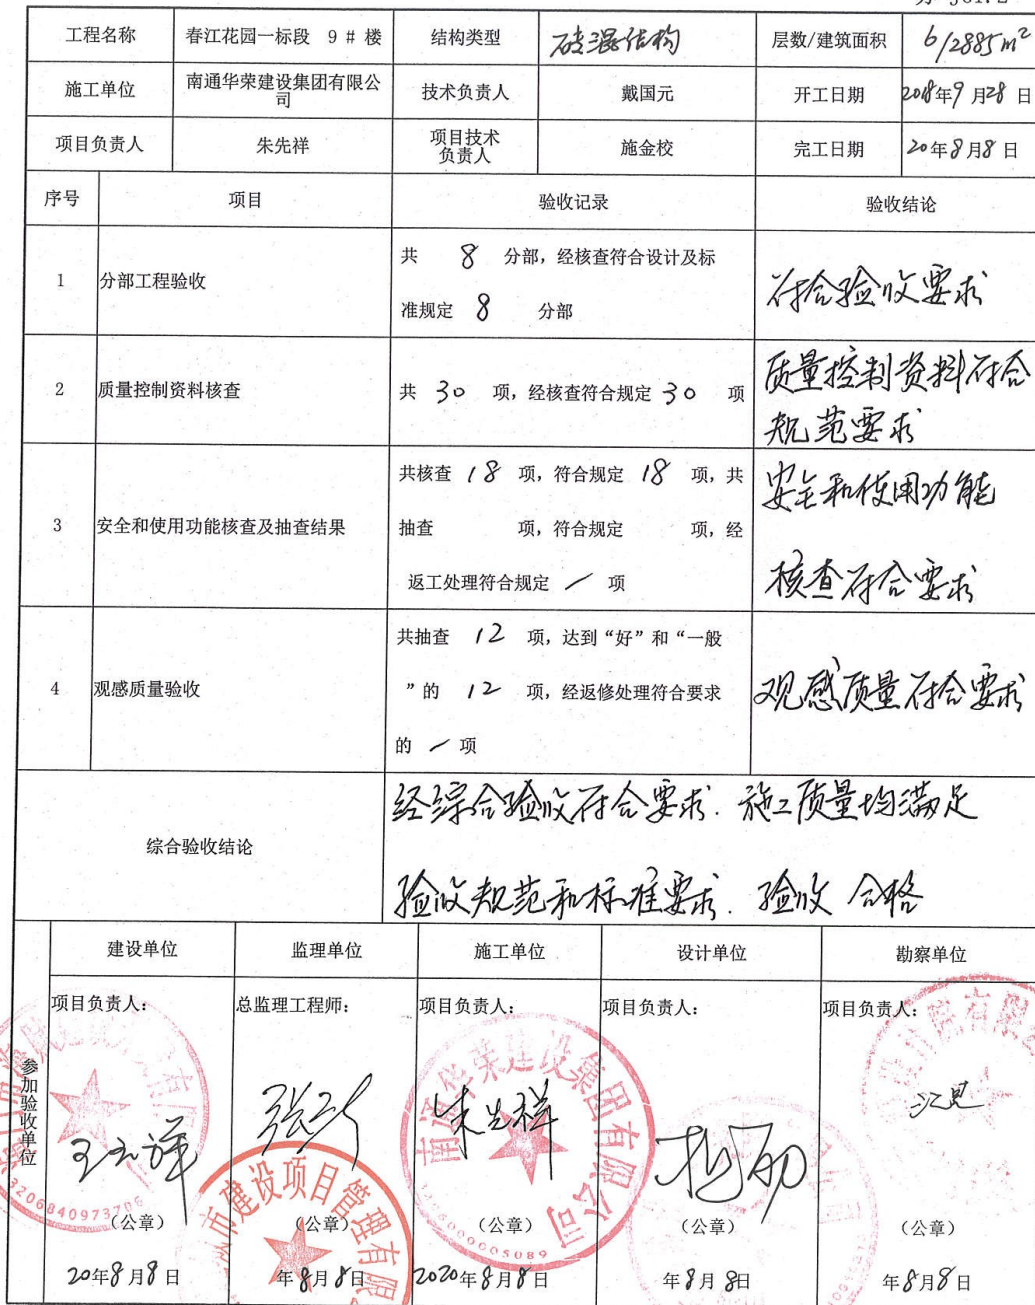 工程名称 春江花园一标段 9 # 楼 结构类型 砖混结构 层数/建筑面积 6/2885m²
施工单位 南通华荣建设集团有限公
司 技术负责人 戴国元 开工日期 2018年9月28日
项目负责人 朱先祥 项目技术
负责人 施金校 完工日期 20年8月8日
序号 项目 验收记录 验收结论
1 分部工程验收 共 8 分部，经核查符合设计及标
准规定 8 分部
符合验收要求
2 质量控制资料核查 共 30 项，经核查符合规定 30 项
质量控制资料符合
规范要求
3 安全和使用功能核查及抽查结果
共核查 18 项，符合规定 18 项，共
抽查 项，符合规定 项，经
返工处理符合规定 / 项
安全和使用功能
核查符合要求
4 观感质量验收
共抽查 12 项，达到“好”和“一般
”的 12 项，经返修处理符合要求
的 / 项
观感质量符合要求
综合验收结论
经综合验收符合要求. 施工质量均满足
验收规范和标准要求. 验收 合格
参加验收单位
建设单位 监理单位 施工单位 设计单位 勘察单位
项目负责人： 总监理工程师： 项目负责人： 项目负责人： 项目负责人：
朱先祥
南通华荣建设集团有限公司
市建设项目管理有限
3206840973706
（公章） （公章） （公章） （公章） （公章）
20年8月8日 年8月8日 2020年8月8日 年8月8日 年8月8日